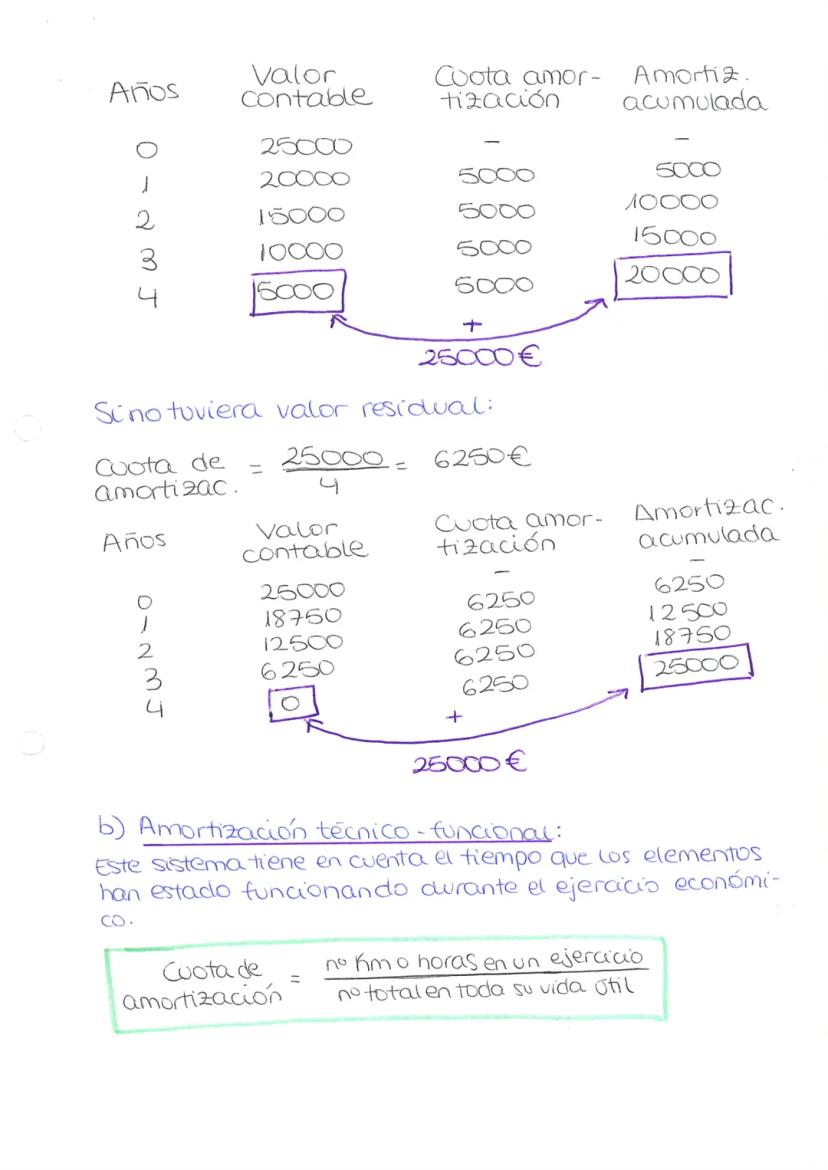 Años Valor contable Cuota amortización Amortiz. acumulada
0 25000 - -
1 20000 5000 5000
2 15000 5000 10000
3 10000 5000 15000
4 5000 5000 20000
+
25000€
Si no tuviera valor residual:
Cuota de amortizac. = 25000 / 4 = 6250€
Años Valor contable Cuota amortización Amortizac. acumulada
0 25000 - -
1 18750 6250 6250
2 12500 6250 12500
3 6250 6250 18750
4 0 6250 25000
+
25000€
b) Amortización técnico-funcional:
Este sistema tiene en cuenta el tiempo que los elementos
han estado funcionando durante el ejercicio económi-
co.
Cuota de amortización = nº Km o horas en un ejercicio / nº total en toda su vida útil